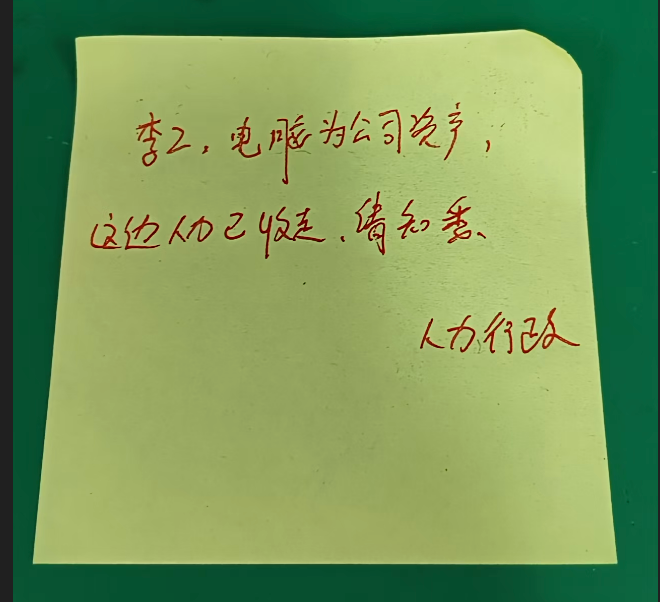 李工，电脑为公司资产，
这边人力已收走，请知悉、
人力行政